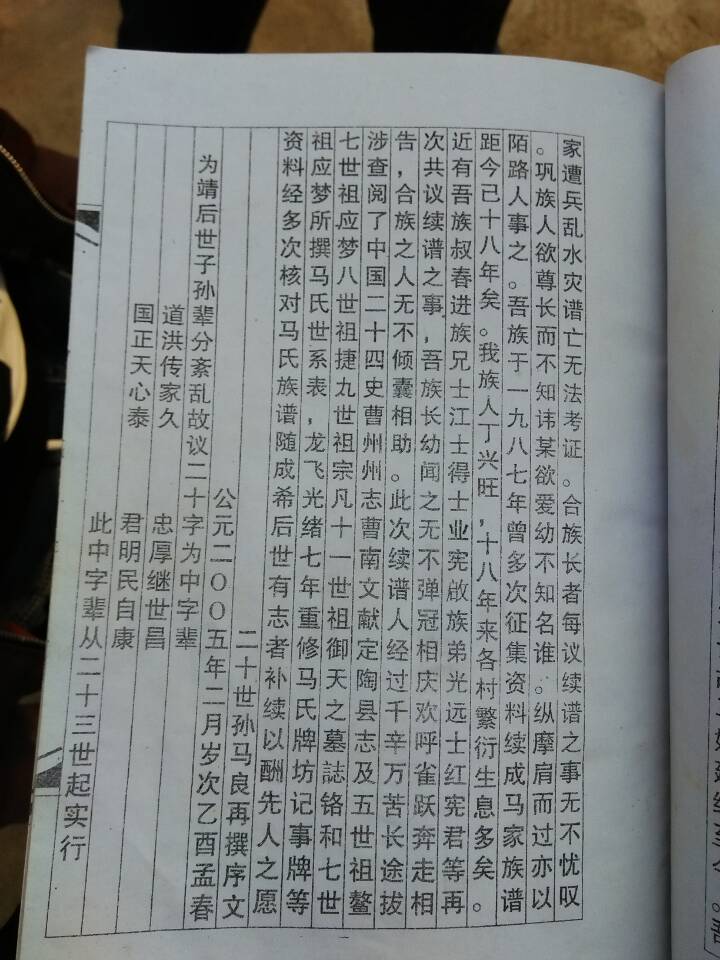 家遭兵乱水灾谱亡无法考证。合族长者每议续谱之事无不忧叹
。巩族人欲尊长而不知讳某欲爱幼不知名谁。纵摩肩而过亦以
陌路人事之。吾族于一九八七年曾多次征集资料续成马家族谱
距今已十八年矣。我族人丁兴旺,十八年来各村繁衍生息多矣。
近有吾族叔春进族兄士江士得士业宪啟族弟光远士红宪君等再
次共议续谱之事,吾族长幼闻之无不弹冠相庆欢呼雀跃奔走相
告,合族之人无不倾囊相助。此次续谱人经过千辛万苦长途拔
涉查阅了中国二十四史曹州州志曹南文献定陶县志及五世祖鳌
七世祖应梦八世祖捷九世祖宗凡十一世祖御天之墓誌铭和七世
祖应梦所撰马氏世系表,龙飞光绪七年重修马氏牌坊记事牌等
资料经多次核对马氏族谱随成希后世有志者补续以酬先人之愿
二十世孙马良再撰序文
公元二00五年二月岁次乙酉孟春
为靖后世子孙辈分紊乱故议二十字为中字辈
道洪传家久 忠厚继世昌
国正天心泰 君明民自康
此中字辈从二十三世起实行